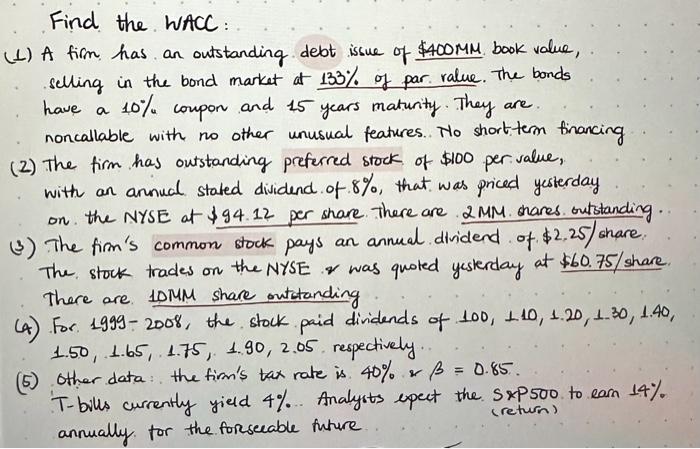 Find the WACC:
(1) A firm has an outstanding debt issue of $400MM book value,
selling in the bond market at 133% of par value. The bonds
have a 10% coupon and 15 years maturity. They are
noncallable with no other unusual features. No short-term financing
(2) The firm has outstanding preferred stock of $100 per value,
with an annual stated dividend of 8%, that was priced yesterday
on the NYSE at $94.12 per share. There are 2MM shares outstanding.
(3) The firm's common stock pays an annual dividend of $2.25/share.
The stock trades on the NYSE & was quoted yesterday at $60.75/share.
There are 10MM share outstanding
(4) For 1999-2008, the stock paid dividends of 1.00, 1.10, 1.20, 1.30, 1.40,
1.50, 1.65, 1.75, 1.90, 2.05 respectively.
(5) Other data: the firm's tax rate is 40% & β = 0.85.
T-bills currently yield 4%. Analysts expect the S&P500 to earn 14%
(return)
annually for the foreseeable future